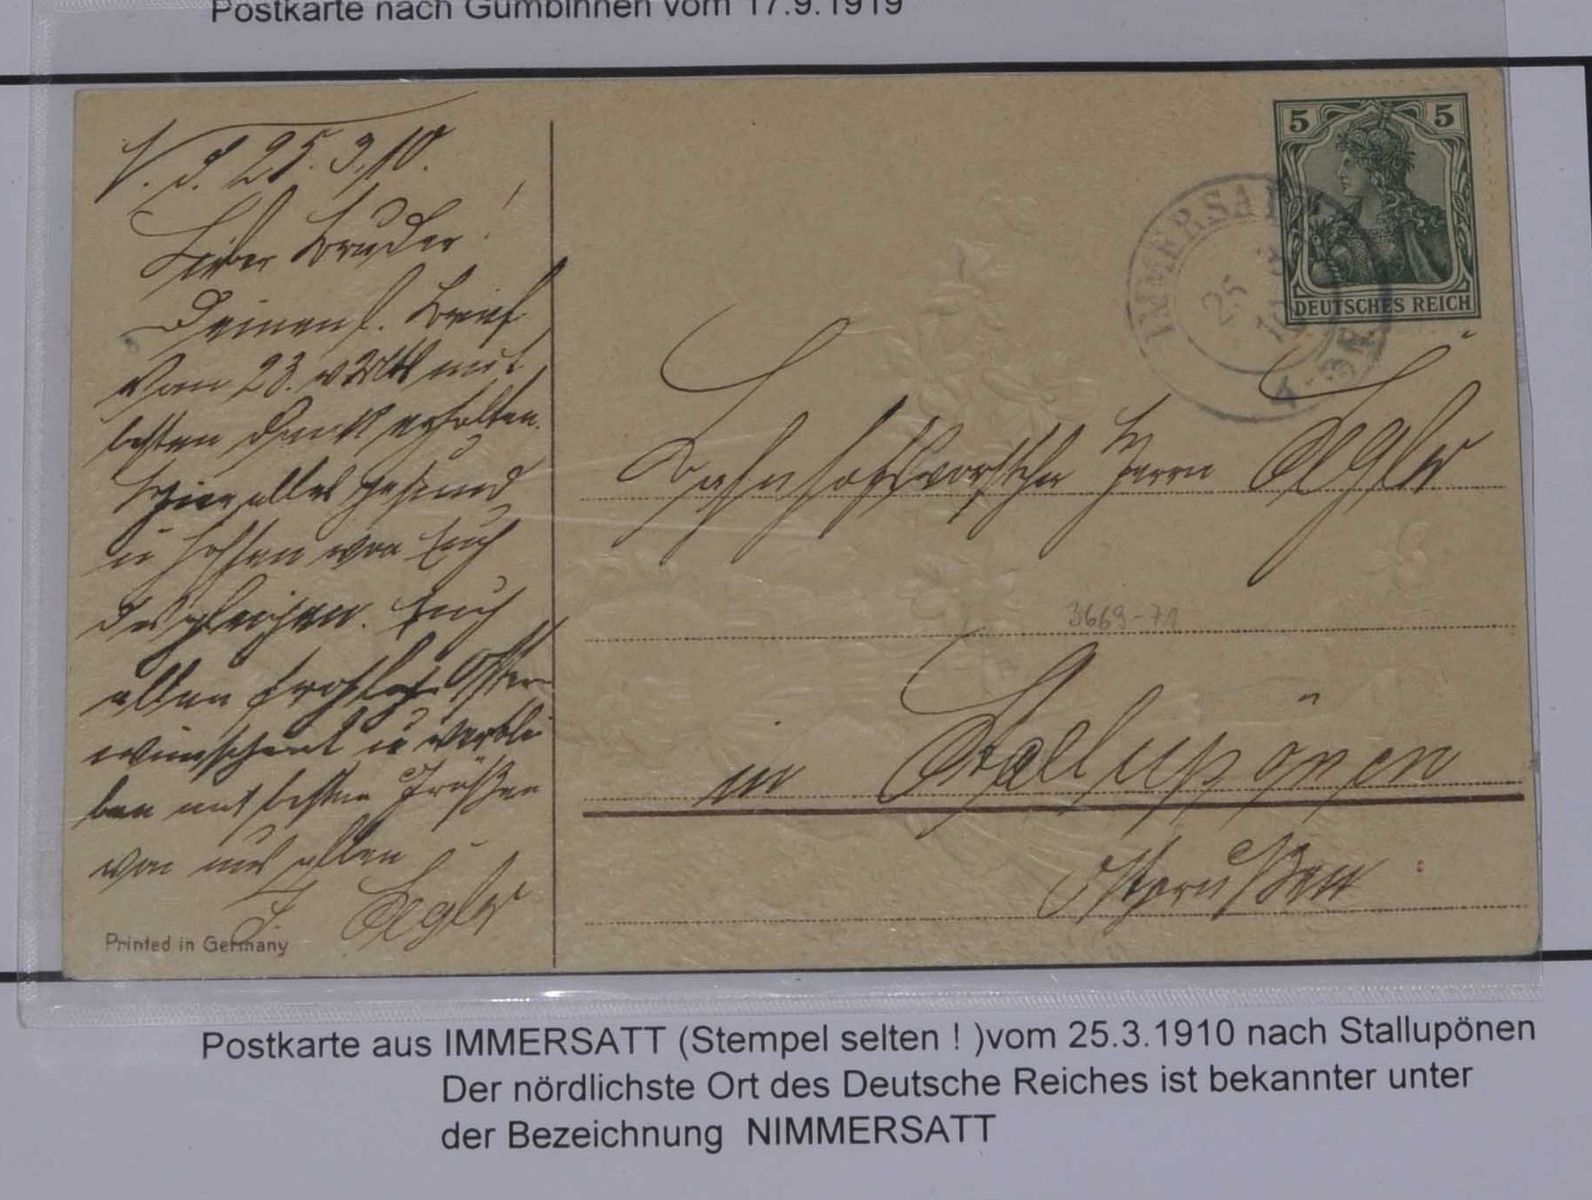 Postkarte nach Gumbinnen vom 17.9.1919
25.3.10.
Lieber Bruder!
Deinen l. Brief
vom 23. mit
besten Dank erhalten.
Hier alles gesund
u hoffen von Euch
desgleichen. Euch
allen fröhliche Oster
wünschend u verblei
ben mit besten Grüßen
von uns allen
Printed in Germany
5 5
DEUTSCHES REICH
IMMERSATT
25 3
Bahnhofsvorsteher Herrn
3669-71
in Stallupönen
Ostpreußen
Postkarte aus IMMERSATT (Stempel selten ! )vom 25.3.1910 nach Stallupönen
Der nördlichste Ort des Deutsche Reiches ist bekannter unter
der Bezeichnung NIMMERSATT